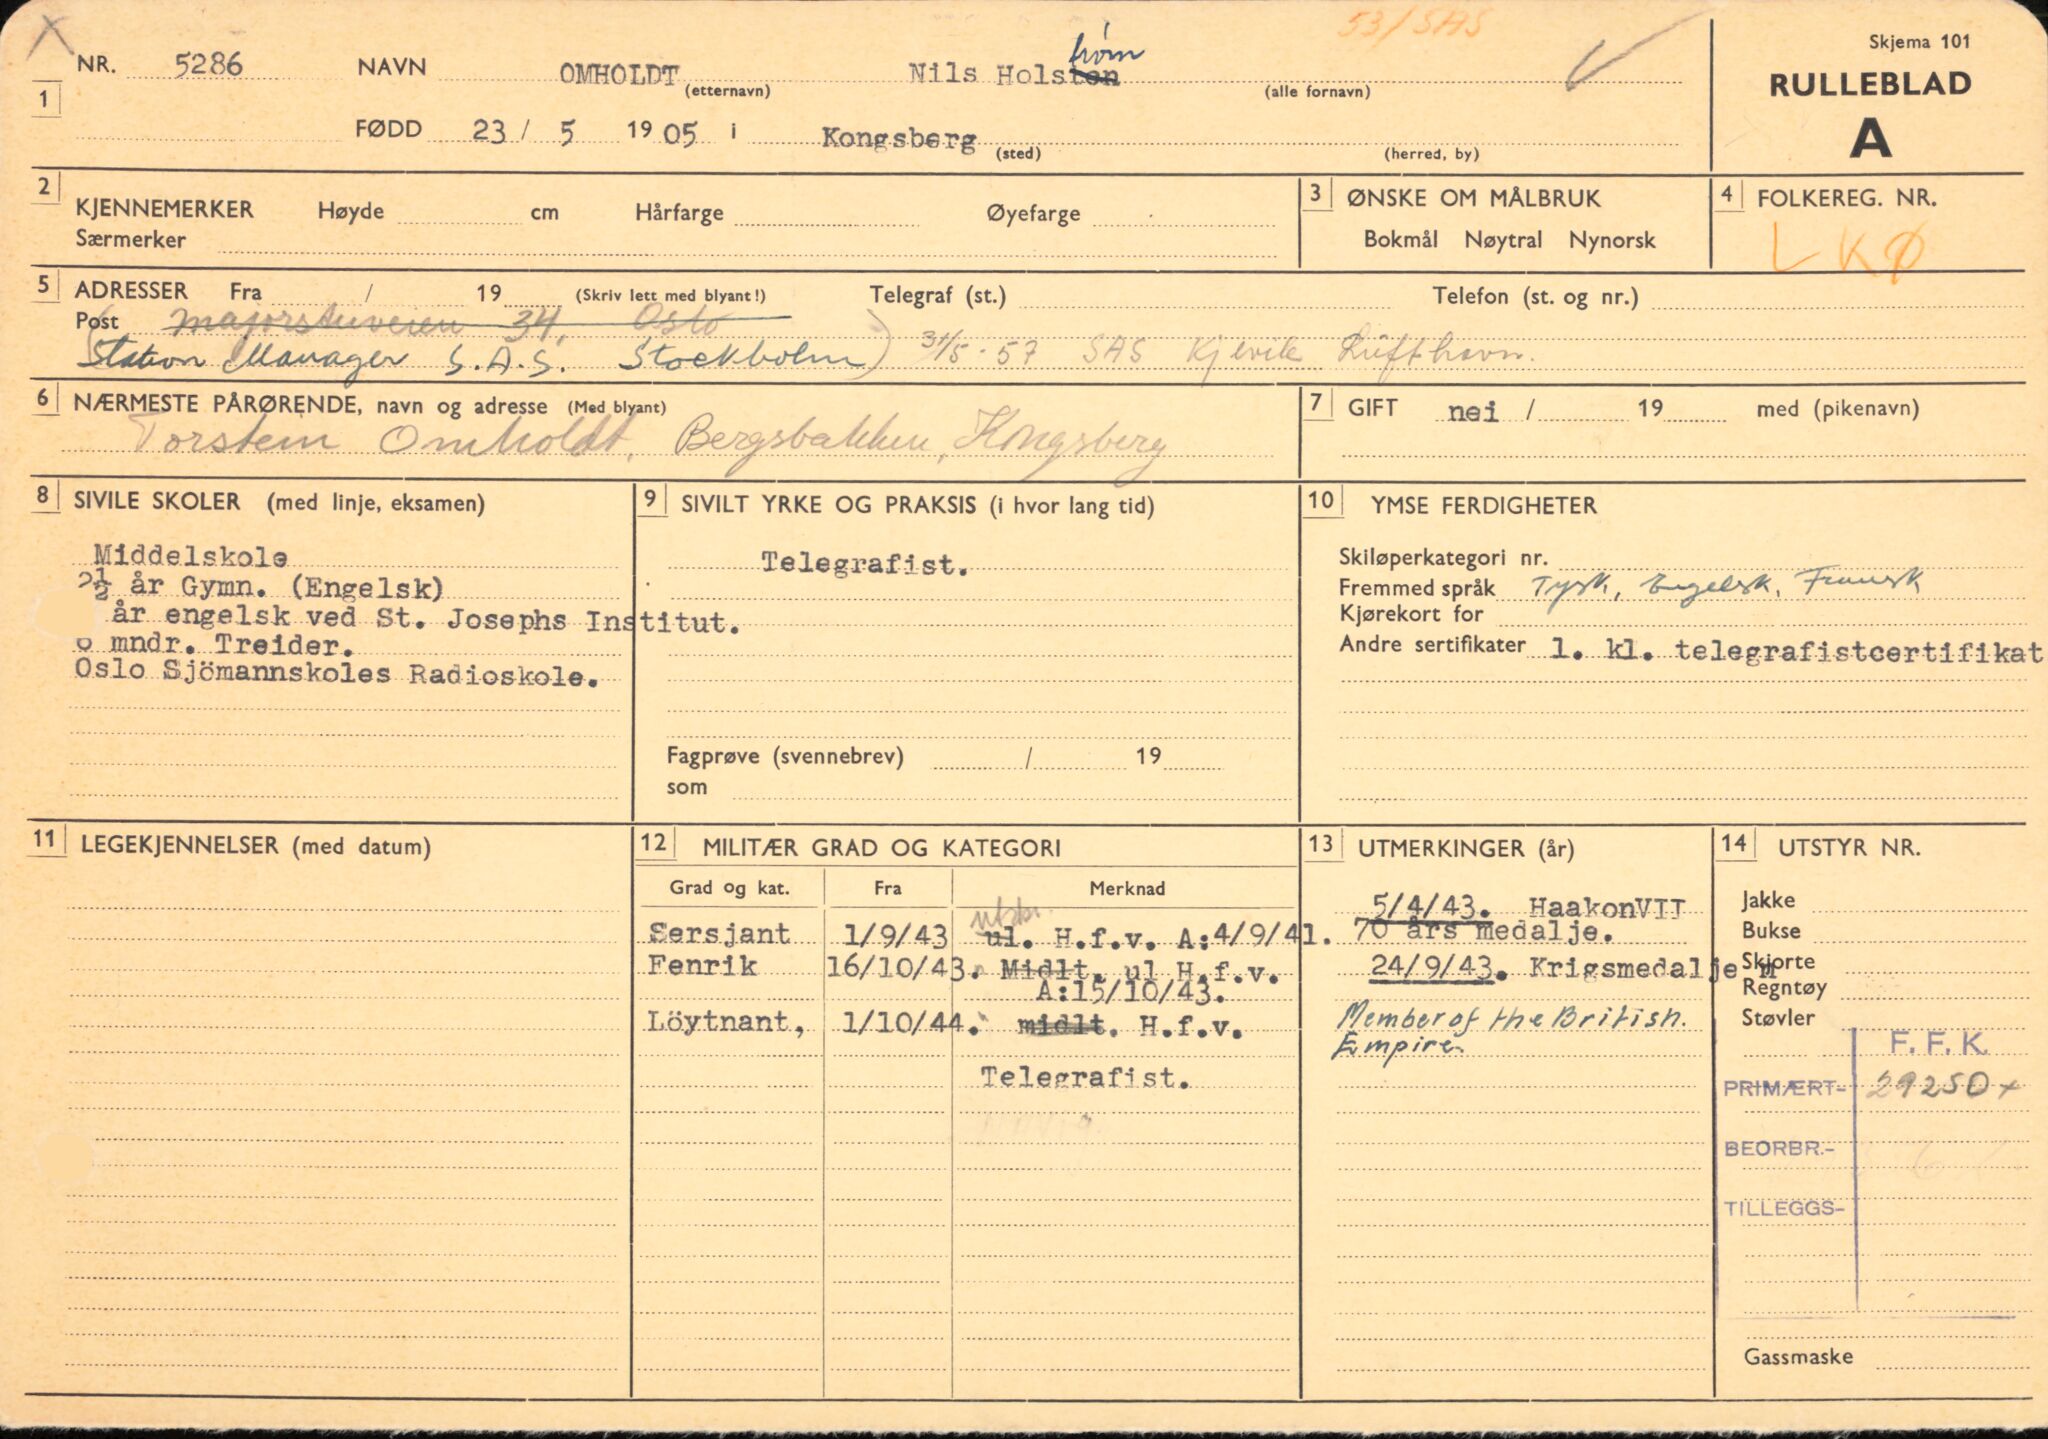 53/SAS
Skjema 101
RULLEBLAD
A
1
NR. 5286 NAVN OMHOLDT (etternavn) Nils Holsten hörn (alle fornavn)
FØDD 23 / 5 1905 i Kongsberg (sted) (herred, by)
2 KJENNEMERKER Høyde cm Hårfarge Øyefarge
Særmerker
3 ØNSKE OM MÅLBRUK
Bokmål Nøytral Nynorsk
4 FOLKEREG. NR.
L K Ø
5 ADRESSER Fra / 19 (Skriv lett med blyant!) Telegraf (st.) Telefon (st. og nr.)
Post Majorstuveien 34, Oslo
(Station Manager S.A.S. Stockholm) 31/5-57 SAS Kjevik Lufthavn.
6 NÆRMESTE PÅRØRENDE, navn og adresse (Med blyant)
Torstein Omholdt, Bergsbakken, Kongsberg
7 GIFT nei / 19 med (pikenavn)
8 SIVILE SKOLER (med linje, eksamen)
Middelskole
2½ år Gymn. (Engelsk)
år engelsk ved St. Josephs Institut.
6 mndr. Treider.
Oslo Sjömannskoles Radioskole.
9 SIVILT YRKE OG PRAKSIS (i hvor lang tid)
Telegrafist.
Fagprøve (svennebrev) / 19
som
10 YMSE FERDIGHETER
Skiløperkategori nr.
Fremmed språk Tysk, Engelsk, Fransk
Kjørekort for
Andre sertifikater 1. kl. telegrafistcertifikat
11 LEGEKJENNELSER (med datum)
12 MILITÆR GRAD OG KATEGORI
Grad og kat. Fra Merknad
utskr.
Sersjant 1/9/43 ul. H.f.v. A:4/9/41.
Fenrik 16/10/43. Midlt. ul H.f.v.
A:15/10/43.
Löytnant, 1/10/44. midlt. H.f.v.
Telegrafist.
13 UTMERKINGER (år)
5/4/43. HaakonVII
70 års medalje.
24/9/43. Krigsmedaljen
Member of the British
Empire.
14 UTSTYR NR.
Jakke
Bukse
Skjorte
Regntøy
Støvler
F. F. K.
PRIMÆRT- 29250+
BEORBR.-
TILLEGGS-
Gassmaske